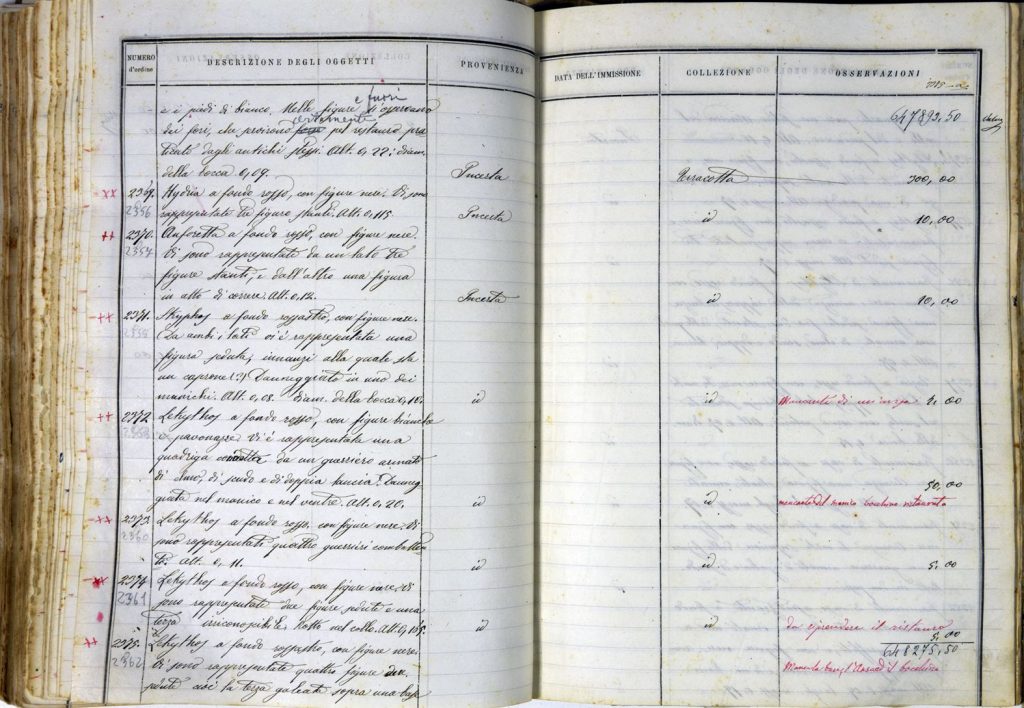 NUMERO d'ordine
DESCRIZIONE DEGLI OGGETTI
PROVENIENZA
DATA DELL'IMMISSIONE
COLLEZIONE
OSSERVAZIONI
647893,50
e i piedi di bianco. Nelle figure e fuori si osservano
certamente
dei fori, che provirono forse pel restauro pra
ticato dagli antichi stessi. Alt. 0,22; diam.
della bocca 0,09. Incerta Terracotta 300,00
×× 2369. Hydria a fondo rosso, con figure nere. Vi sono
2356 rappresentate tre figure stanti. Alt. 0,115. Incerta id 10,00
×× 2370. Anforetta a fondo rosso, con figure nere.
2357 Vi sono rappresentate da un lato tre
figure stanti, e dall'altro una figura
in atto di correre. Alt. 0,12. Incerta id 10,00
×× 2371. Skyphos a fondo rossastro, con figure nere.
2358 Da ambi i lati vi è rappresentata una
figura seduta, innanzi alla quale sta
un caprone (?) Danneggiato in uno dei
manichi. Alt. 0,08. Diam. della bocca 0,10. id id Mancante di un'ansa 2,00
×× 2372 Lekythos a fondo rosso, con figure bianche
2359 e pavonazze. Vi è rappresentata una
quadriga da un guerriero armato
di elmo, di scudo e di doppia lancia. Danneg
50,00
giata nel manico e nel ventre. Alt. 0,20. id id mancante del manico bocchino restaurato
×× 2373. Lekythos a fondo rosso, con figure nere. Vi
2360 sono rappresentati quattro guerrieri combatten
ti. Alt. 0,11. id id 5,00
×× 2374 Lekythos a fondo rosso, con figure nere. Vi
2361 sono rappresentate due figure sedute e una
terza irriconoscibile. Rotto nel collo. Alt. 0,155. id id da riprendere il ristauro
5,00
×× 2375. Lekythos a fondo rossastro, con figure nere. 648275,50
2362 Vi sono rappresentate quattro figure
sedute cioè la terza galeata sopra una base